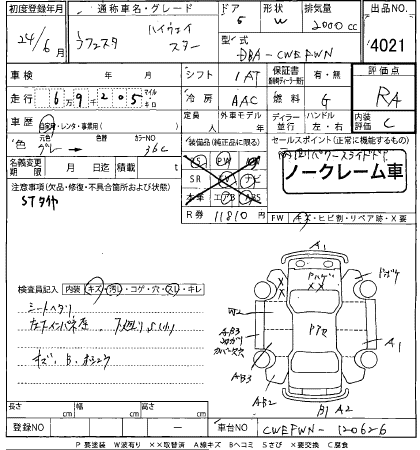 初度登録年月 通称車名・グレード ドア 形状 排気量 出品NO.
24/6月 ラフェスタ ハイウェイスター 5 W 2000cc 4021
型式 DBA-CWEFWN
車検 年 月 シフト 1AT 保証書 有・無 評価点
走行 69205 マイル キロ 冷房 AAC 燃料 G RA
車歴 自家用・レンタ・事業用( ) 定員 人 外車モデル 年 ディーラー 並行 ハンドル 左・右 内装 C
色 元色 グレー 色替 カラーNO 36C
装備品(純正品に限る) セールスポイント(正常に機能するもの)
両側パワースライドドア
PS PW
SR AV ナビ
本革 エアB ABS
ノークレーム車
名義変更期限 月 日 積載 t
R券 11810円
注意事項(欠品・修復・不具合箇所および状態)
STタイヤ
FW キズ・ヒビ割・リペア跡・X要
検査員記入 内装 キズ・汚れ・コゲ・穴・スレ・キレ
シートヘタリ
キズ・B・
A1
W2
A1
AB3
AB3
B1 A2
長さ cm 幅 cm 高さ cm
登録NO - 車台NO CWEFWN-120626
P要塗装 W波有り XX取替済 A線キズ Bヘコミ Sさび X要交換 C腐食